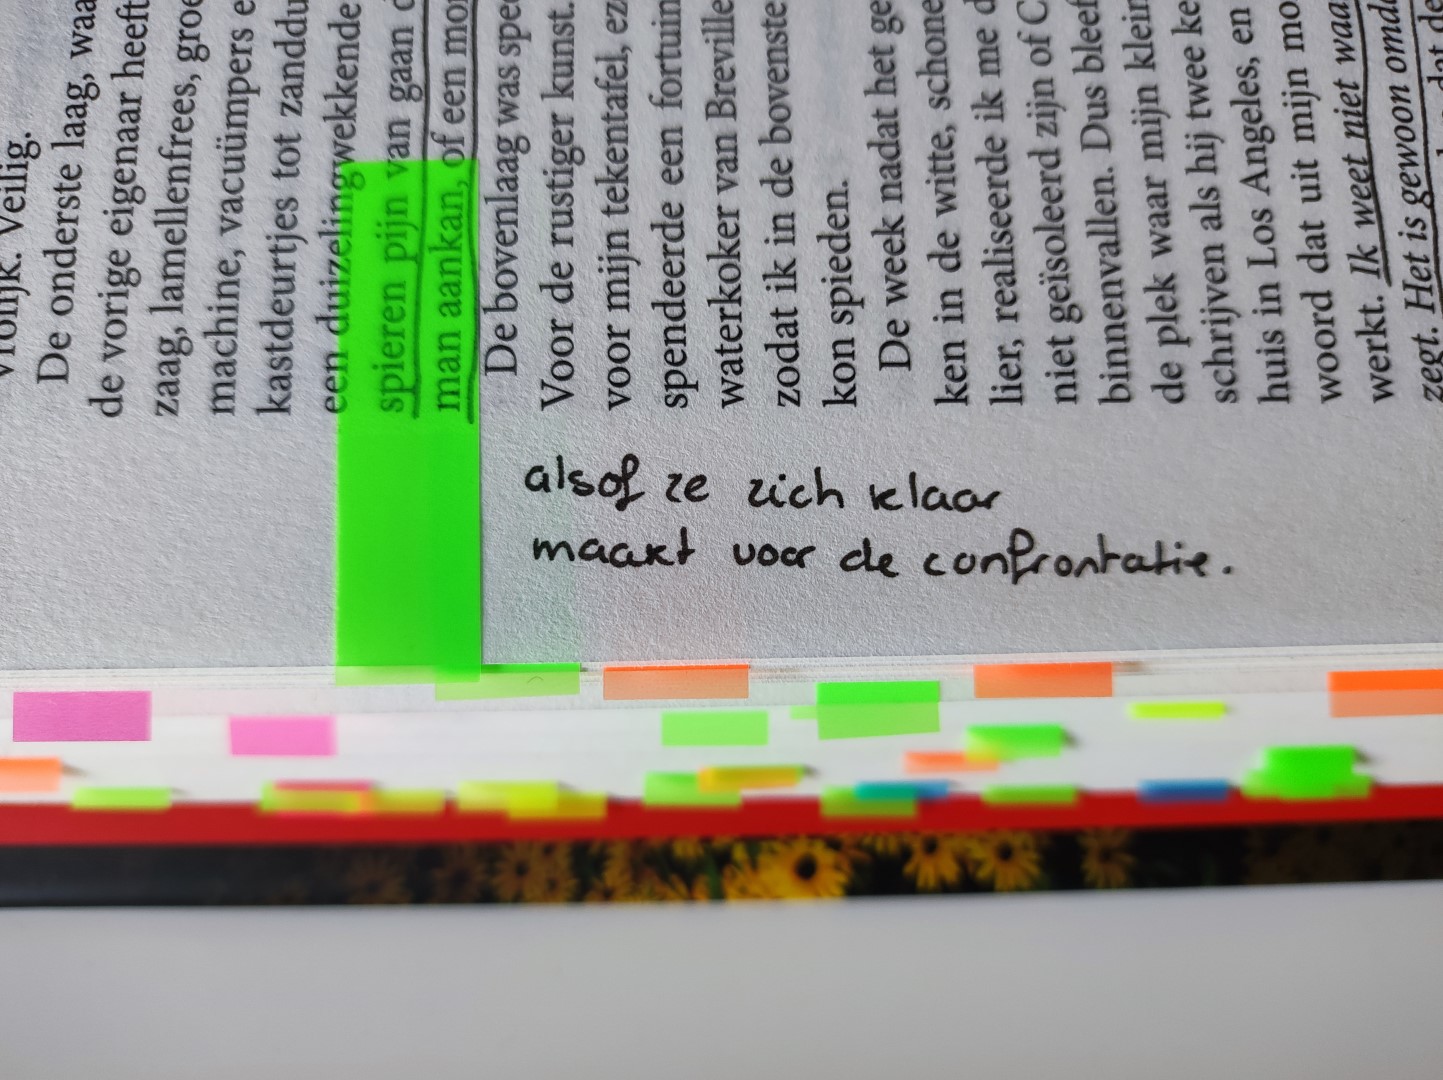 vrolijk. Veilig.
De onderste laag, waa
de vorige eigenaar heeft
zaag, lamellenfrees, groe
machine, vacuümpers e
kastdeurtjes tot zanddu
een duizelingwekkende
spieren pijn van gaan d
man aankan, of een mon
De bovenlaag was spec
Voor de rustiger kunst.
voor mijn tekentafel, eze
spendeerde een fortuin
waterkoker van Breville
zodat ik in de bovenste
kon spieden.
De week nadat het ge
ken in de witte, schone
lier, realiseerde ik me d
niet geïsoleerd zijn of C
binnenvallen. Dus bleef
de plek waar mijn klein
schrijven als hij twee ke
huis in Los Angeles, en
woord dat uit mijn mo
werkt. Ik weet niet waa
zegt. Het is gewoon omda
dat de
alsof ze zich klaar
maakt voor de confrontatie.